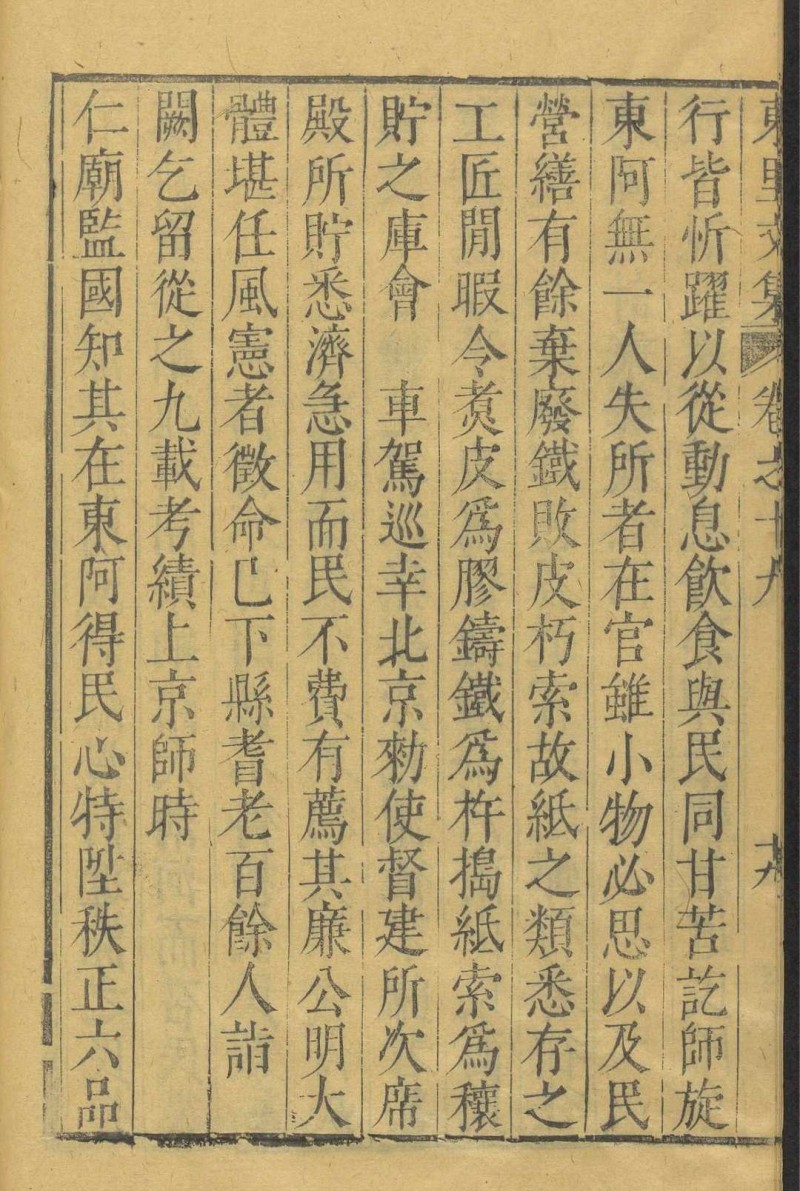 東里文集 卷之十九 十九
行皆忻躍以從動息飲食與民同甘苦訖師旋
東阿無一人失所者在官雖小物必思以及民
營繕有餘棄廢鐵敗皮朽索故紙之類悉存之
工匠閒暇令煑皮爲膠鑄鐵爲杵搗紙索爲穰
貯之庫會　車駕巡幸北京勑使督建所次席
殿所貯悉濟急用而民不費有薦其廉公明大
體堪任風憲者徵命巳下縣耆老百餘人詣
闕乞留從之九載考績上京師時
仁廟監國知其在東阿得民心特陞秩正六品